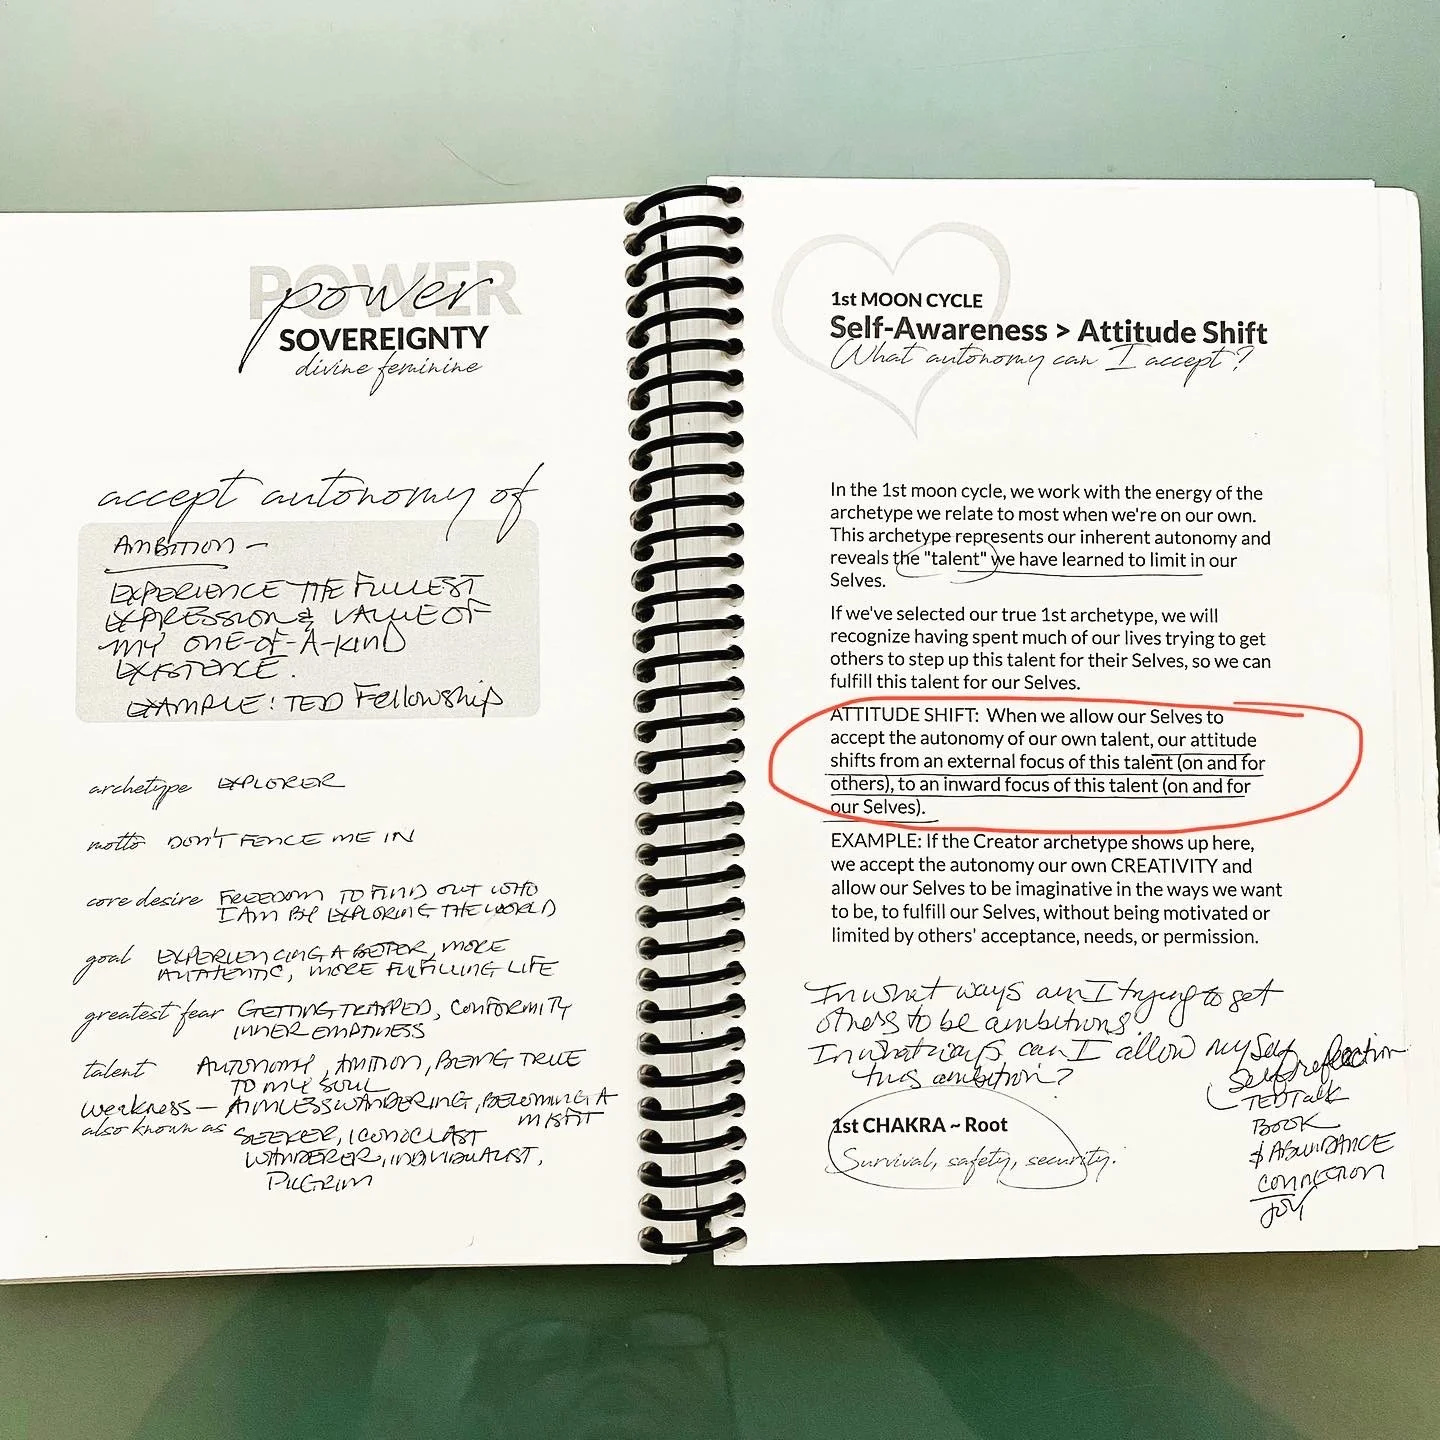 POWER
power
SOVEREIGNTY
divine feminine
accept autonomy of
AMBITION —
EXPERIENCE THE FULLEST
EXPRESSION & VALUE OF
MY ONE-OF-A-KIND
EXISTENCE.
EXAMPLE: TED FEllowship
archetype EXPLORER
motto DON'T FENCE ME IN
core desire FREEDOM TO FIND OUT WHO
I AM BY EXPLORING THE WORLD
goal EXPERIENCING A BETTER, MORE
AUTHENTIC, MORE FULFILLING LIFE
greatest fear GETTING TRAPPED, CONFORMITY
INNER EMPTINESS
talent AUTONOMY, AMBITION, BEING TRUE
TO MY SOUL
weakness — AIMLESS WANDERING, BECOMING A
MISFIT
also known as SEEKER, ICONOCLAST
WANDERER, INDIVIDUALIST,
PILGRIM
1st MOON CYCLE
Self-Awareness > Attitude Shift
What autonomy can I accept?
In the 1st moon cycle, we work with the energy of the
archetype we relate to most when we're on our own.
This archetype represents our inherent autonomy and
reveals the "talent" we have learned to limit in our
Selves.
If we've selected our true 1st archetype, we will
recognize having spent much of our lives trying to get
others to step up this talent for their Selves, so we can
fulfill this talent for our Selves.
ATTITUDE SHIFT: When we allow our Selves to
accept the autonomy of our own talent, our attitude
shifts from an external focus of this talent (on and for
others), to an inward focus of this talent (on and for
our Selves).
EXAMPLE: If the Creator archetype shows up here,
we accept the autonomy our own CREATIVITY and
allow our Selves to be imaginative in the ways we want
to be, to fulfill our Selves, without being motivated or
limited by others' acceptance, needs, or permission.
In what ways am I trying to get
others to be ambitious
In what ways can I allow my Self
this ambition?
Self reflection
TED Talk
BOOK
$ ABUNDANCE
CONNECTION
JOY
1st CHAKRA ~ Root
Survival, safety, security.